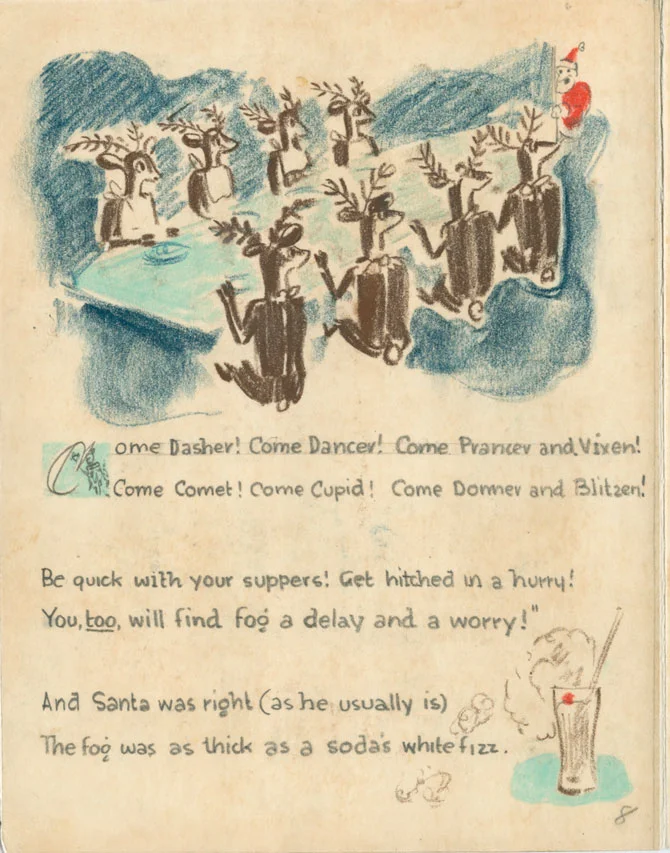 Come Dasher! Come Dancer! Come Prancer and Vixen!
Come Comet! Come Cupid! Come Donner and Blitzen!
Be quick with your suppers! Get hitched in a hurry!
You, too, will find fog a delay and a worry!"
And Santa was right (as he usually is)
The fog was as thick as a soda's white fizz.
8